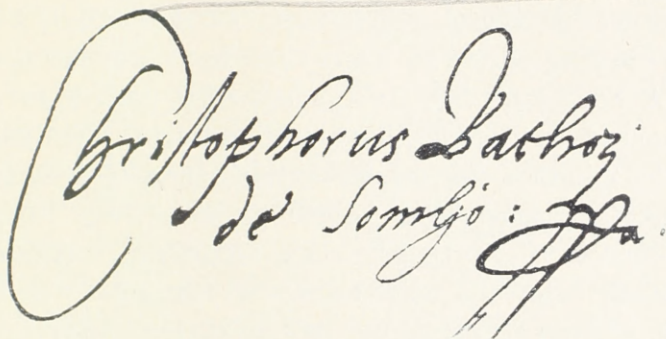 Christophorus Bathorj
de Somljó: ppa.